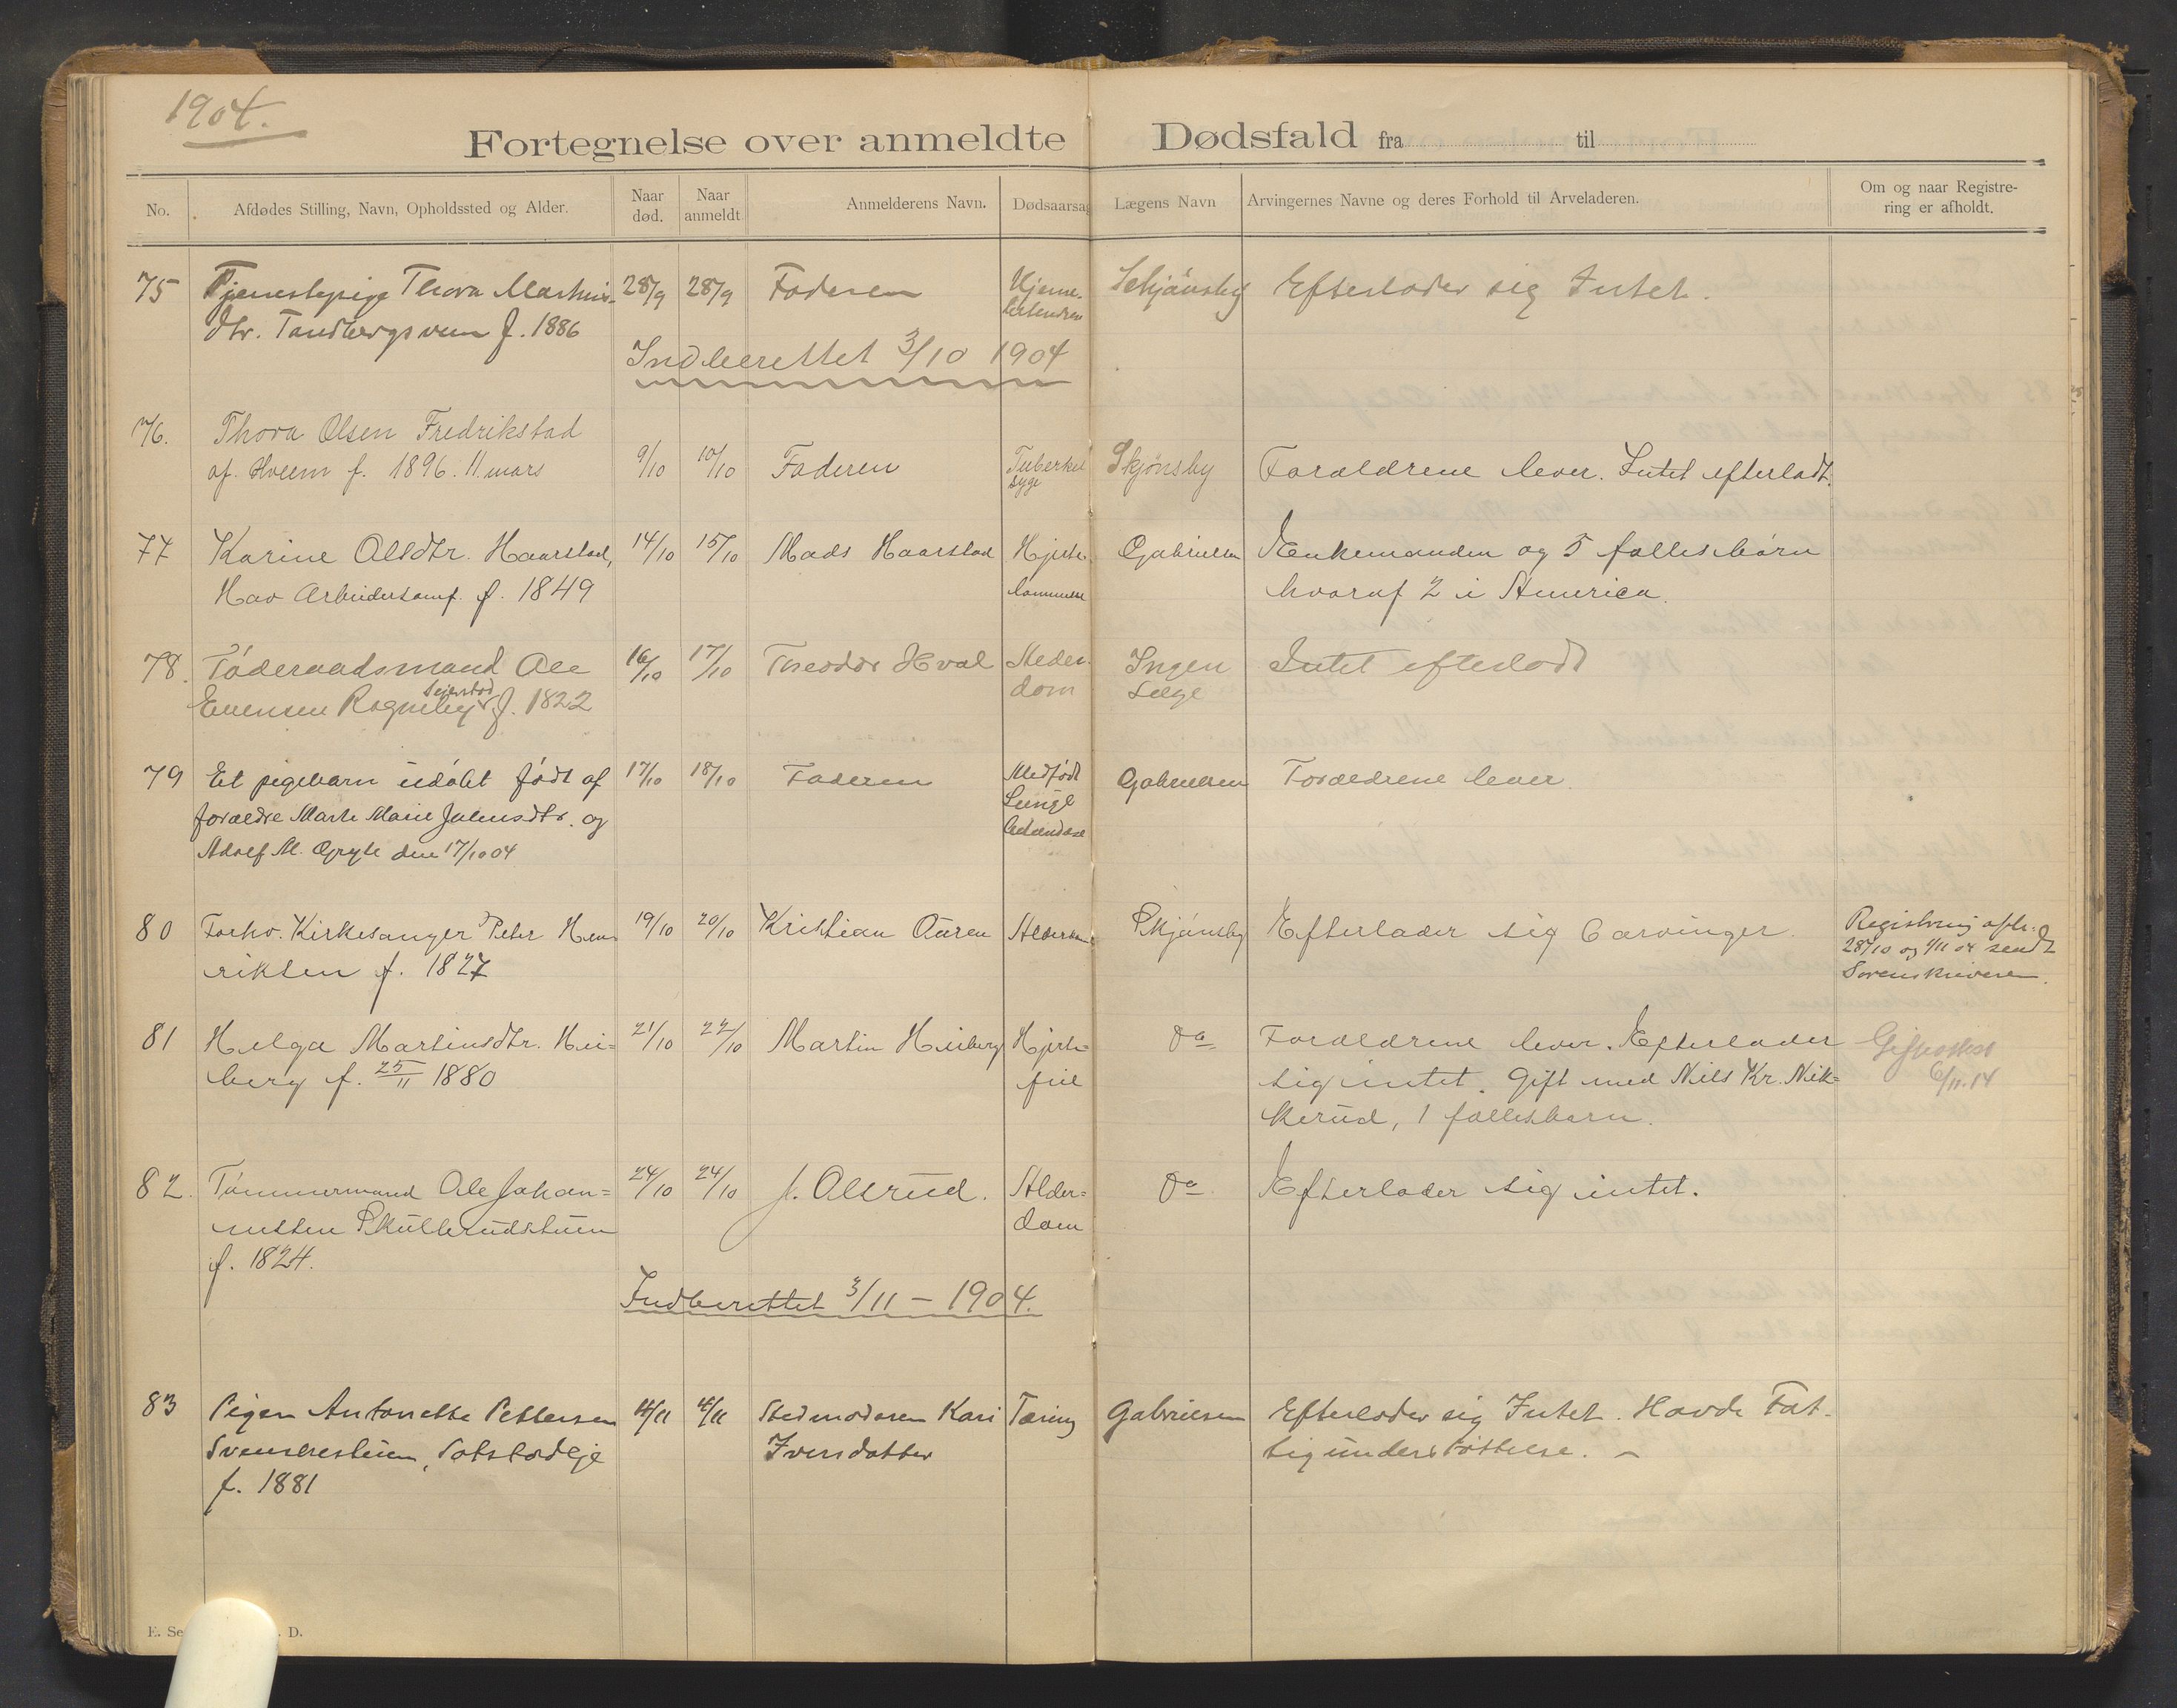 1904.
Fortegnelse over anmeldte Dødsfald fra til
No.
Afdødes Stilling, Navn, Opholdssted og Alder.
Naar død.
Naar anmeldt
Anmelderens Navn.
Dødsaarsag
Lægens Navn
Arvingernes Navne og deres Forhold til Arveladeren.
Om og naar Registre-
ring er afholdt.
75 Tjenestepige Thora Martins- 28/9 28/9 Faderen Hjerne- Schjönsby Efterlader sig Intet.
dtr. Tandbergsveen f. 1886
Indberettet 3/10 1904
76. Thora Olsen Fredrikstad
af. Hveem f. 1896. 11 mars 9/10 10/10 Faderen Tuberkel Skjønsby Forældrene lever. Intet efterladt.
syge
77 Karine Olsdtr. Haarstad, 14/10 15/10 Mads Haarstad Hjerte- Gabrielsen Enkemanden og 5 fællesbørn
Hav Arbeidersamf. f. 1849 lammelse hvoraf 2 i America.
78. Föderaadsmand Ole 16/10 17/10 Theodor Hval Alder- Ingen Intet efterladt
Evensen Rognebyseierstad f. 1822 dom Læge
79 Et pigebarn udøbt født af 17/10 18/10 Faderen Medfødt Gabrielsen Forældrene lever.
forældre Marte Marie Julensdtr. og Lunge
Adolf M. Gryte den 17/10 04
80 Forhv. Kirkesanger Peter Hen- 19/10 20/10 Kristian Auren Alderdom Skjönsby Efterlader sig 6 arvinger. Registrering afh.
riksen f. 1827 28/10 og 1/11 04 sendt
Sorenskriveren.
81 Helga Martinsdtr. Hei= 21/10 22/10 Martin Heiberg Hjerte= do Forældrene lever. Efterlader
berg f. 25/11 1880 feil sig intet. Gift med Nils Kr. Nik=
kerud, 1 fællesbarn. 6/11.14
82. Tömmermand Ole Johan= 24/10 24/10 J. Olsrud. Alder= do Efterlader sig intet.
nessen Skullerudstuen dom
f. 1824.
Indberettet 3/11 – 1904.
83 Pigen Antonette Pettersen 4/11 4/11 Stedmoderen Kari Tæring Gabrielsen Efterlader sig Intet. Havde Fat-
Svenskestuen, Sotstadeje Iversdatter tigunderstøttelse. –
f. 1881
E. Se D.